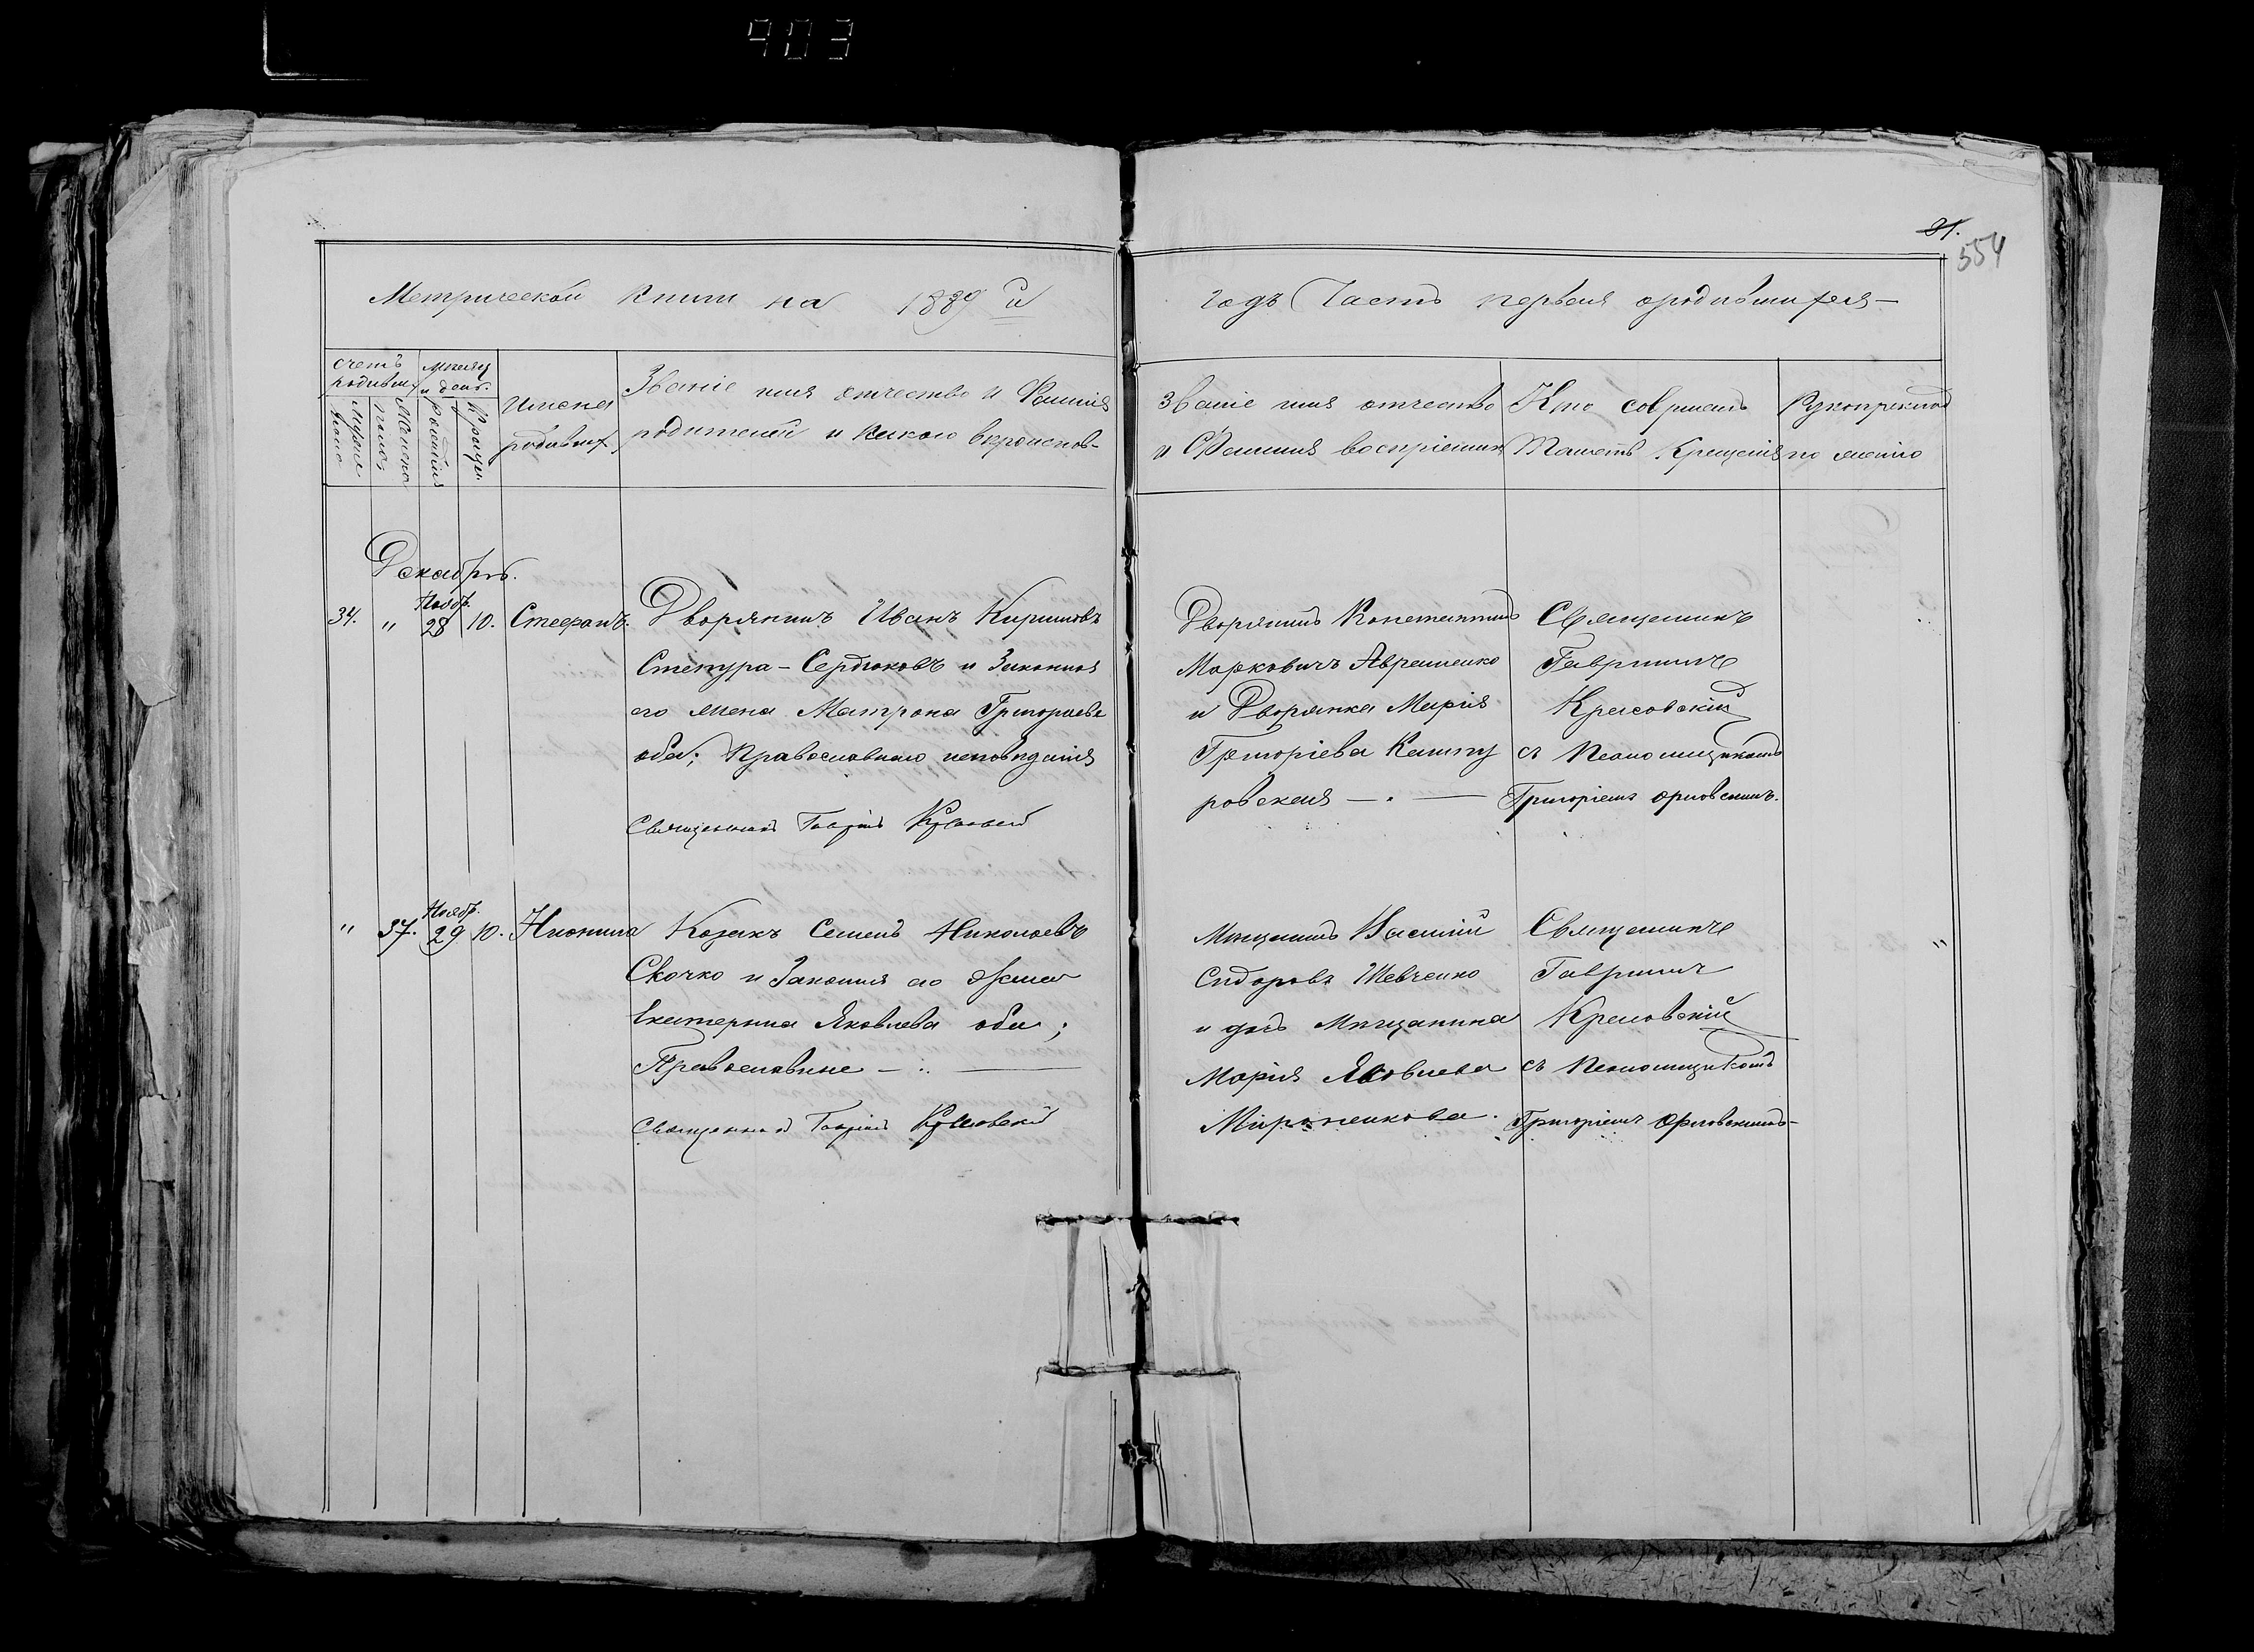 903
31.
554
Метрической книги на 1889 й
годъ Часть первая ородившихся —
счетъ родивш.
Мужска пола
Женска пола
Месяц и день.
рождения
Крещен.
Имена
родивших.
Званіе имя отчество и Фамилія
родителей и какого вероиспов-
Званіе имя отчество
и Фамилия восприемник
Кто совершалъ
Таинств Крещенія
Рукоприклад
по желанію
Декабрь.
34. " Ноябр. 28 10. Стефанъ.
Дворянинъ Иванъ Кириловъ
Стенура - Сердюковъ и Законная
его жена Матрона Григориева
оба; Православнаго исповеданія
Священникъ Гавріилъ Кресовскій
Дворянинъ Константинъ
Марковичъ Авраменко
и Дворянка Марія
Григоріева Кашпу
ровская — . —
Священникъ
Гавриилъ
Кресовскій
съ Псаломщикомъ
Григоріемъ Орловскимъ.
" 37. Ноябр. 29 10. Нионила
Козакъ Семенъ Николаевъ
Скочко и Законная его Жена
Екатерина Яковлева оба;
Православные — .. —
Священникъ Гавріилъ Кресовскій
Мещанинъ Василий
Сидоровъ Шевченко
и дочь Мещанина
Марія Яковлева
Міроненкова.
Священникъ
Гавриилъ
Кресовскій
съ Псаломщикомъ
Григоріемъ Орловскимъ —
"